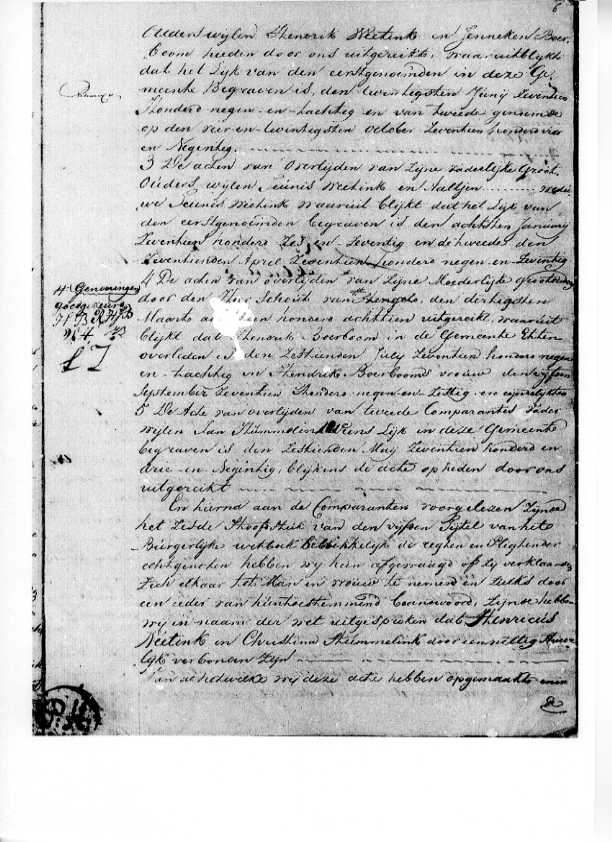 6
Ouders wylen Hendrik Weetink en Jenneken Boer-
boom heeden door ons uitgereikt, waaruit blykt
dat het Lyk van den eerstgenoemden in deze Ge-
meente Begraven is, den twintigsten Juny Zeventien
Honderd negen-en-tachtig en van tweede genoemde
op den vier-en-twintigsten October Zeventien honderd vier
en Negintig.
3 De acten van Overlyden van Zyne vaderlyke Groot-
Ouders, wylen Teunis Weetink en Aaltjen ........ wedu-
we Teunis Weetink waaruit blykt dat het Lyk van
den eerstgenoemden begraven is den achtsten January
Zeventien honderd Zes-en-Zeventig en de tweede den
Zeventienden April Zeventien honderd negen-en-Zeventig
4 De acten van overlyden van Zyne Moederlyke Grootouders
door den Heer Schout van Hengelo, den dertigsten
Maart achttien honderd achttien uitgereikt, waaruit
blykt dat Hendrik Boerboom in de Gemeente Ehten
overleden is den Zestienden July Zeventien honderd negen-
en-tachtig en Hendriks Boerbooms vrouw den vyfden
September Zeventien Honderd negen-en-Zestig en eindelyk
5 De Acte van overlyden van tweede Comparantes vader
wylen Jan Hummelink wiens Lyk in deze Gemeente
begraven is den Zestienden Mey Zeventien honderd en
drie-en-Negintig, blykens de acte op heden door ons
uitgereikt
En hierna aan de Comparanten voorgelezen Zynde
het Zesde Hoofdstuk van den vyfden Tytel van het
Burgerlyke wetboek betrekkelyk de regten en Pligten der
echtgenoten hebben wy hun afgevraagd of zy verklaarden
Zich elkaar tot Man en vrouw te nemen en Zulks door
een ieder van hun toestemmend beantwoord, Zynde hebben
wy in naam der wet uitgesproken dat Henricus
Weetink en Christina Hummelink door een wettig Huwe-
lyk verbonden Zyn
Van al hetwelke wy deze acte hebben opgemaakt en in